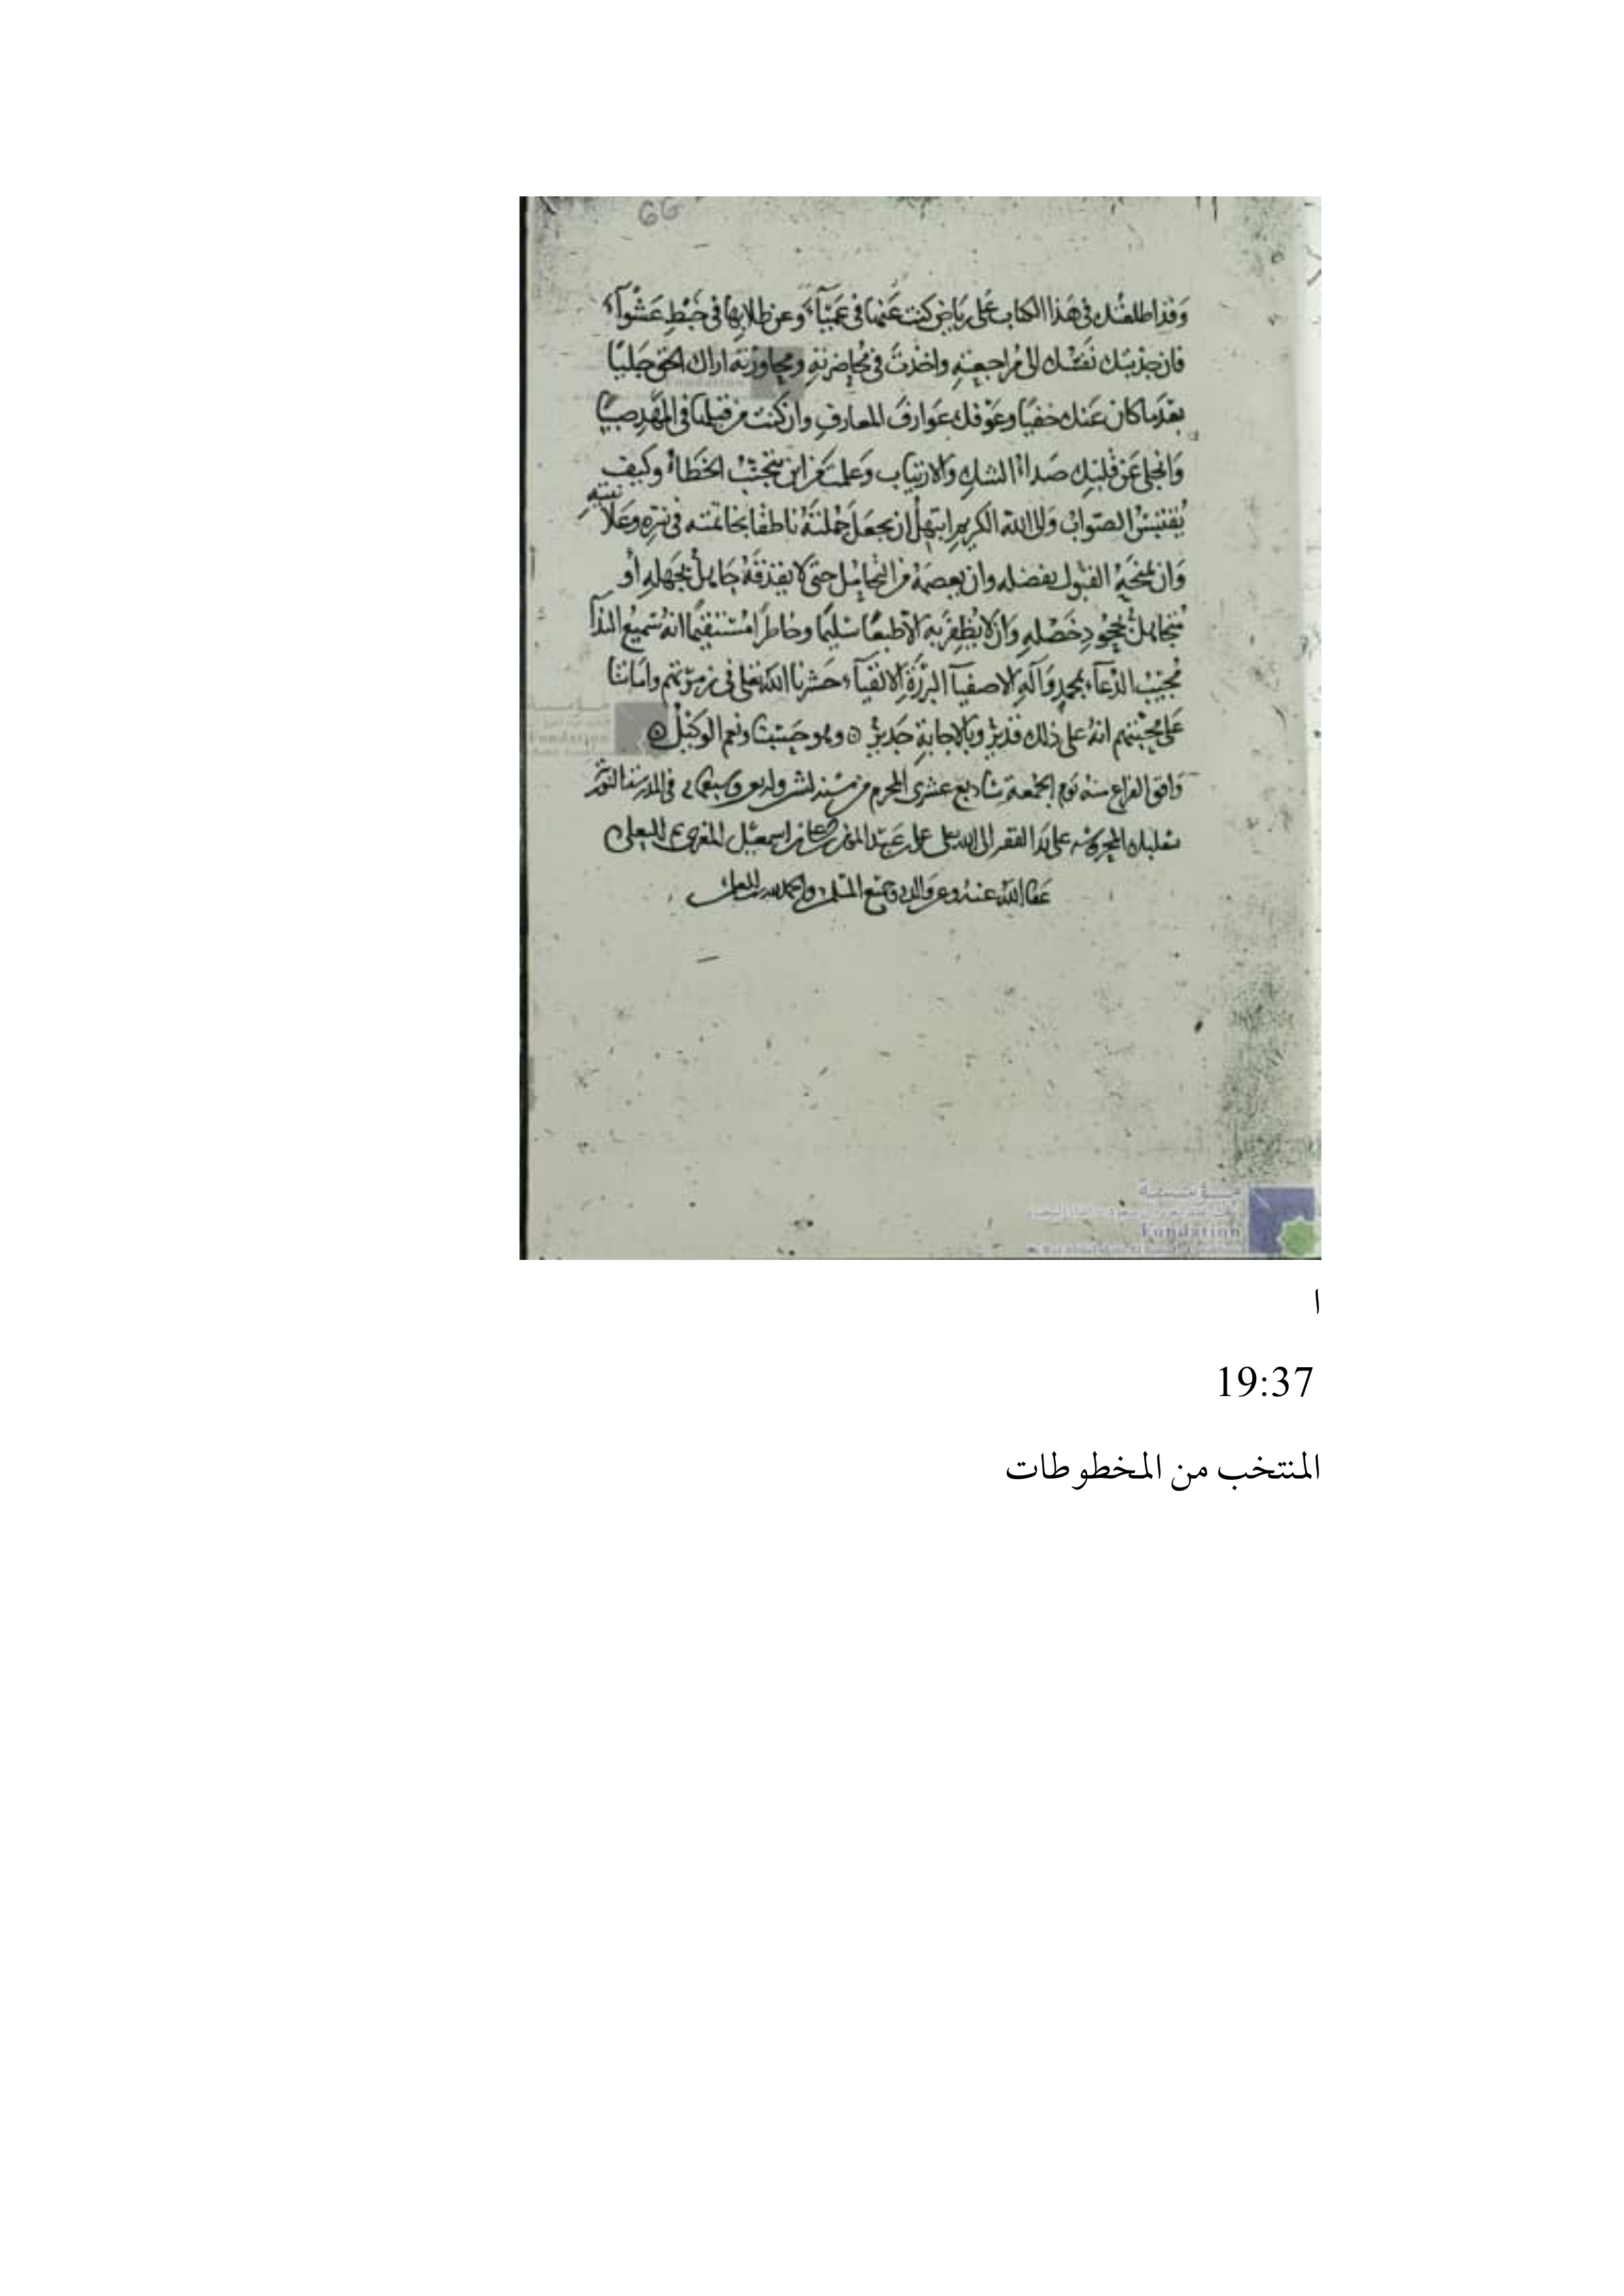 66
وَقَدْ اطلعتك فى هَذا الكتاب عَلى رياض كنت عَنها فى عَميَآء وعن طلابها فى خبْطِ عَشْوآء
فان جذبتك نفسُك الى مُراجعته واخذتَ فى مُحاضرته ومحاورته اراك الحق جَليّا
بعْدَما كان عَنك خفيّا وعَرّفك عوارفَ المعارف وان كنت من قبلها فى المَهْد صبيّا
وَانجلى عَن قلبك صَداءُ الشك والارتياب وَعلمتَ من اين يتجنّبُ الخَطَأُ وكيف
يُقتبسُ الصّوابُ وَالى الله الكريم ابتهلُ ان يجعَل جُملتهُ ناطقا بخاتمته فى سرّه وعَلانيته
وَان يمنحَهُ القبُول بفضله وان يعصمَهُ من التحامل حتى لا يقذفَهُ جَاهلٌ بجَهله أو
مُتجاهلٌ بجحُود خَصْله وَان لا يُظفِرَ به الاّ طبعًا سَليمًا وخاطرًا مُستقيمًا انهُ سَميعُ الندآ
مُجيبُ الدّعآء بمحمدٍ وَآلهِ الاصفيآ البرَرَةِ الاتقيآء حَشرنا الله تعلى فى زمرتهم واماتنا
عَلى مُحبّتهم انهُ على ذلك قديرٌ وبالاجابةِ جَديرٌ وهو حَسبنا ونعم الوكيلُ
وَافق الفراغ منه يَوم الجمعة سَابع عشرى المحرم من سنه وسبعمايه فى المدرسه
ببعلبك المحروسه على يَد الفقير الى الله تعلى على بن عَبد المؤمن اسمعيل البعلى
عَفا الله عنهُ وعن وَالديه وجميع المسلمين والحمد لله رب العالمين
مؤسسة
Foundation
ا
19:37
المنتخب من المخطوطات